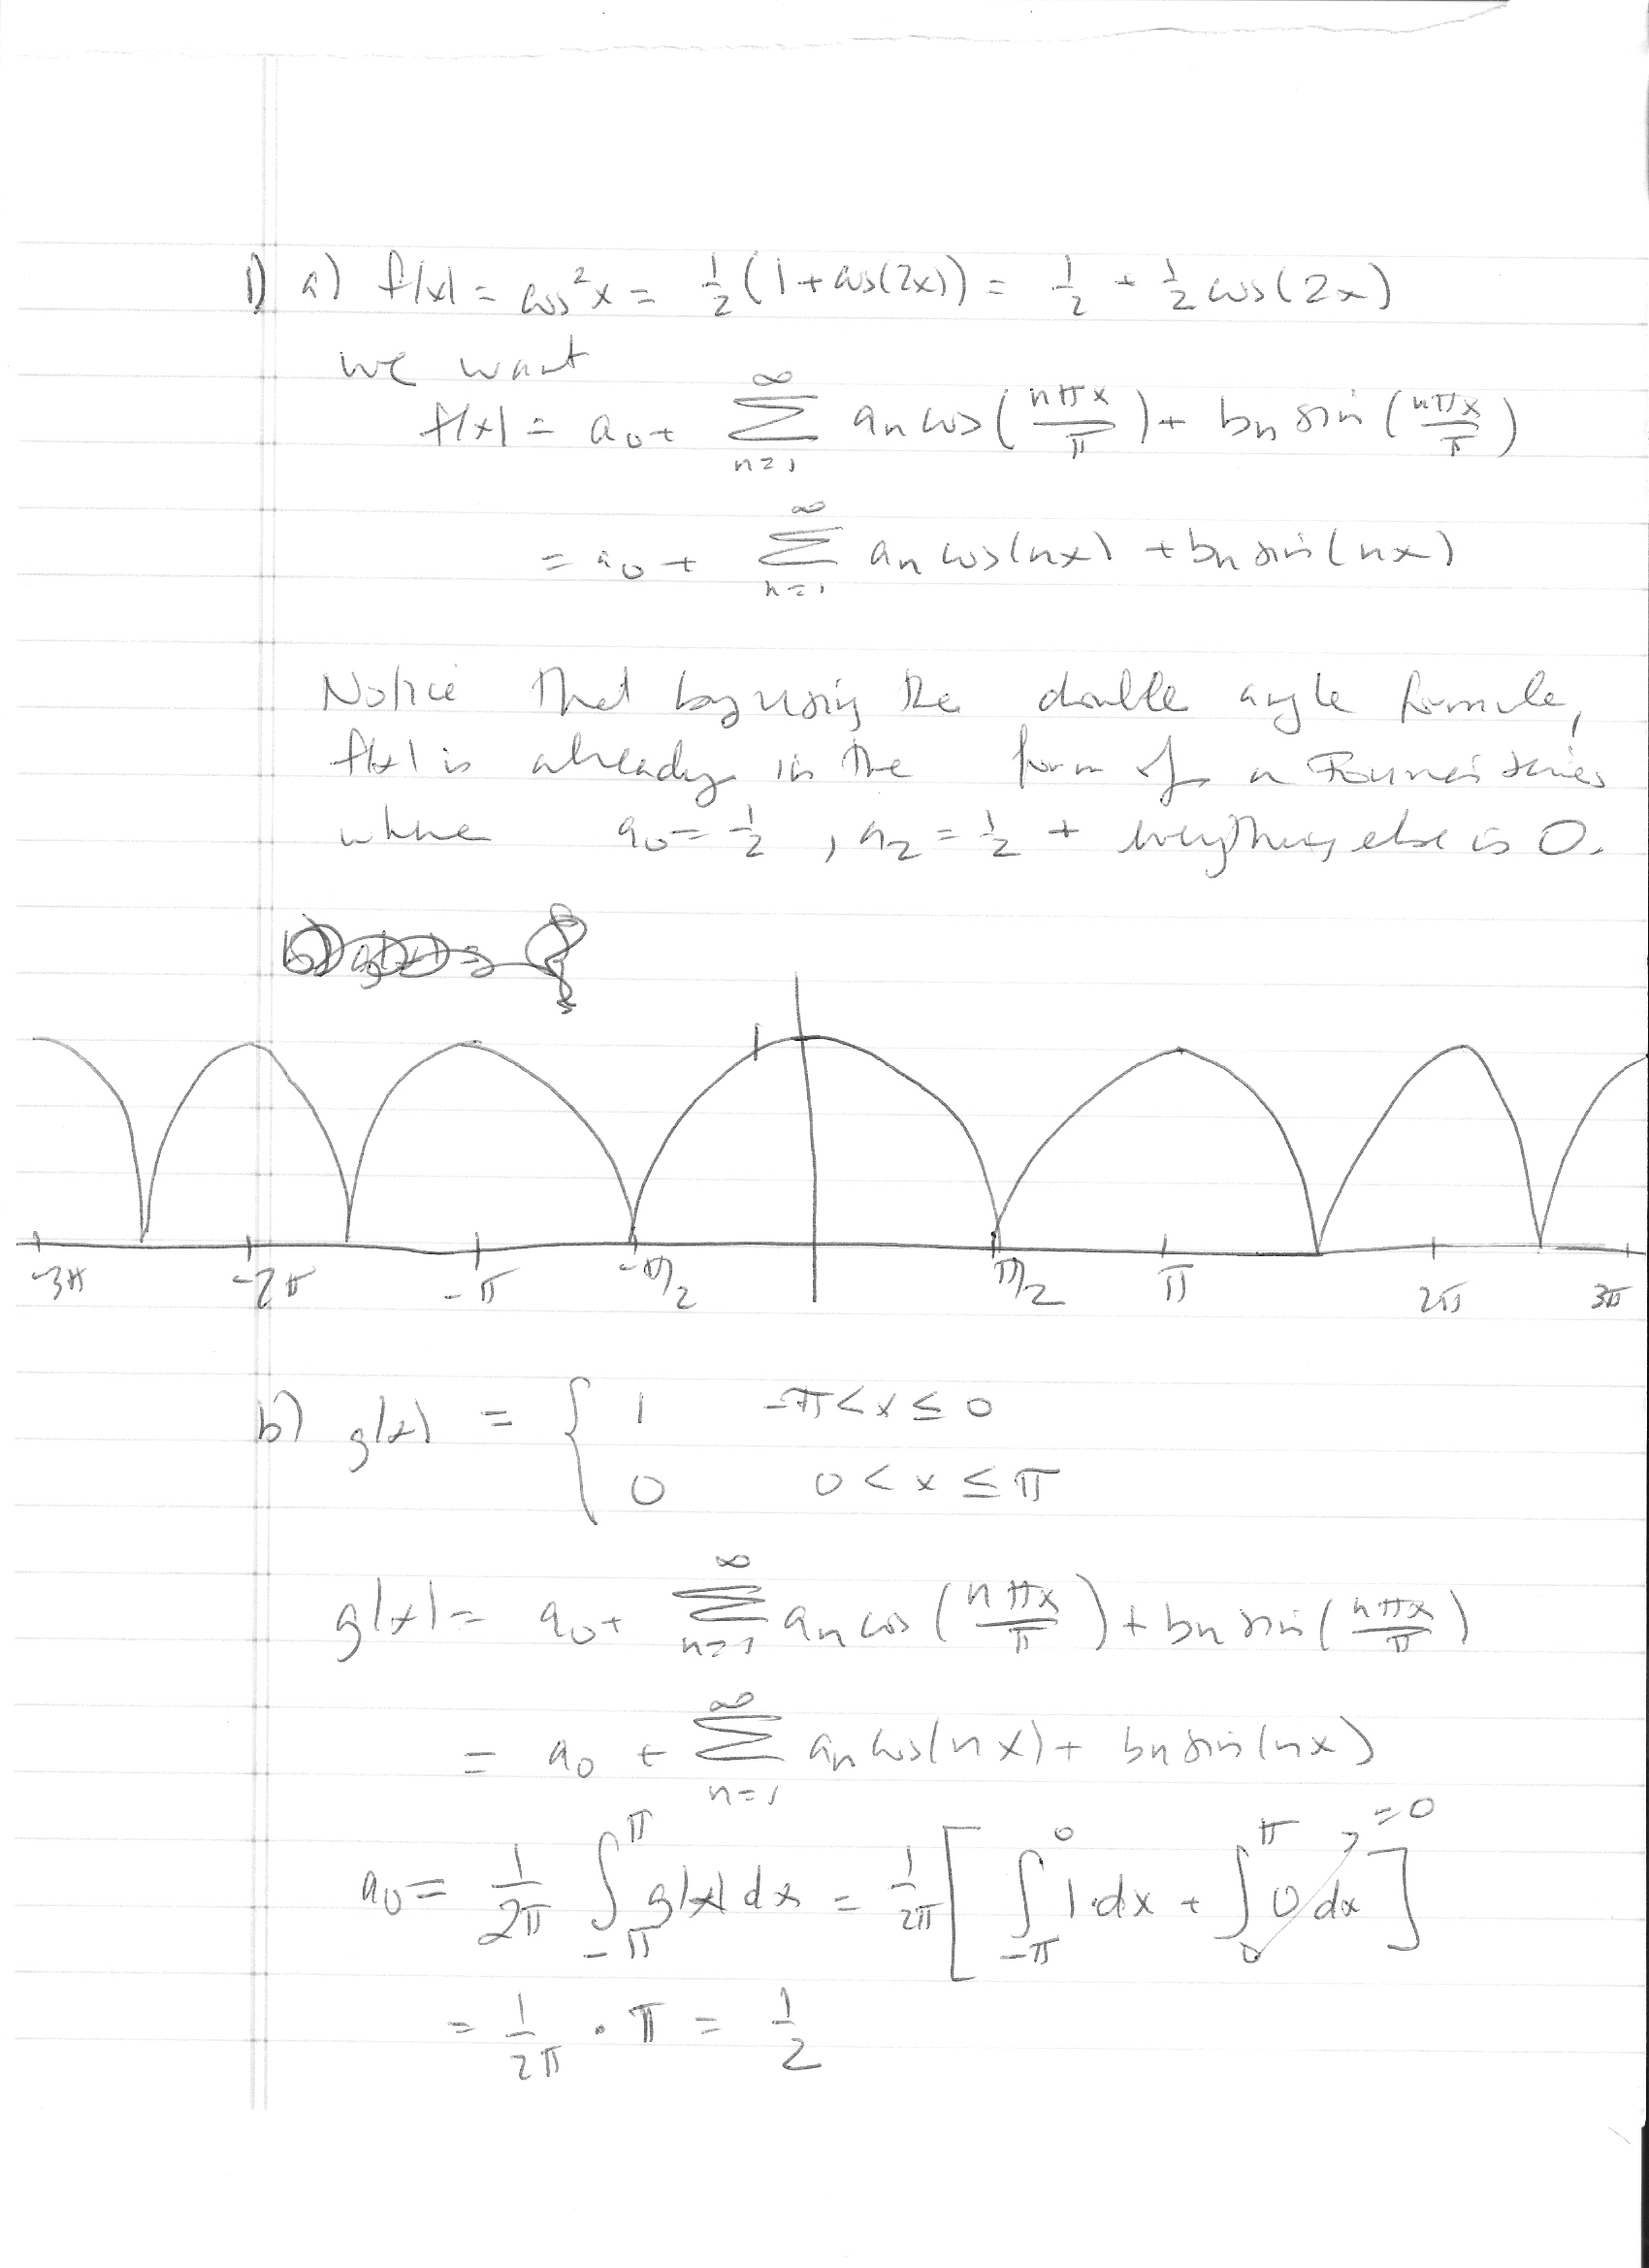 1) a) f(x) = cos²x = 1/2 (1 + cos(2x)) = 1/2 + 1/2 cos(2x)
we want
f(x) = a₀ + ∞ Σ n=1 aₙ cos(nπx/π) + bₙ sin(nπx/π)
= a₀ + ∞ Σ n=1 aₙ cos(nx) + bₙ sin(nx)
Notice that by using the double angle formula,
f(x) is already in the form of a Fourier series
where a₀ = 1/2, a₂ = 1/2 + everything else is 0.
1
-3π -2π -π -π/2 π/2 π 2π 3π
b) g(x) = { 1 -π < x ≤ 0
0 0 < x ≤ π
g(x) = a₀ + ∞ Σ n=1 aₙ cos(nπx/π) + bₙ sin(nπx/π)
= a₀ + ∞ Σ n=1 aₙ cos(nx) + bₙ sin(nx)
a₀ = 1/2π ∫_{-π}^{π} g(x) dx = 1/2π [ ∫_{-π}^{0} 1·dx + ∫_{0}^{π} 0 dx ] = 0
= 1/2π · π = 1/2